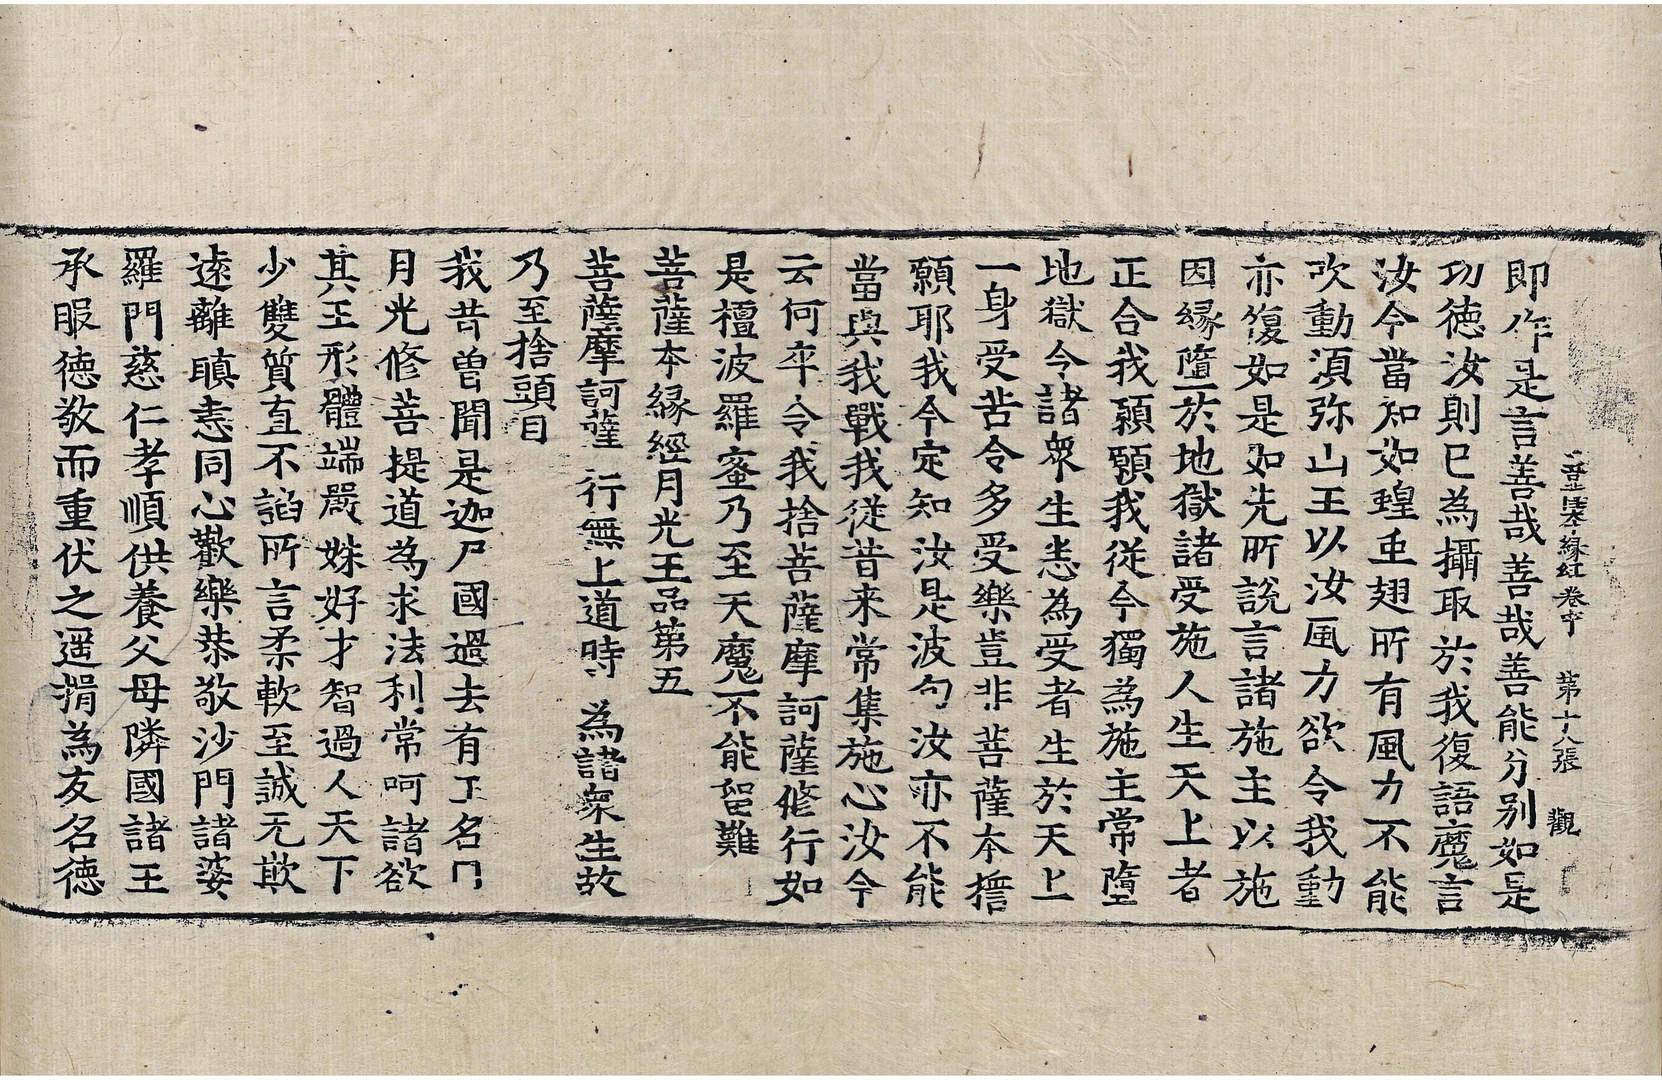 菩薩本縁經卷中 第十八張 觀
即作是言善哉善哉善能分別如是
功德汝則已為攝取於我復語魔言
汝今當知如蝗虫翅所有風力不能
吹動湏弥山王以汝風力欲令我動
亦復如是如先所說言諸施主以施
因縁墮於地獄諸受施人生天上者
正合我願願我從今獨為施主常墮
地獄令諸衆生悉為受者生於天上
一身受苦令多受樂豈非菩薩本擔
願耶我今定知汝是波旬汝亦不能
當與我戰我從昔来常集施心汝今
云何卒令我捨菩薩摩訶薩修行如
是檀波羅蜜乃至天魔不能留難
菩薩本縁經月光王品第五
菩薩摩訶薩 行無上道時 為諸衆生故
乃至捨頭目
我昔曽聞是迦尸國過去有王名曰
月光修菩提道為求法利常呵諸欲
其王形體端嚴姝好才智過人天下
少雙質直不諂所言柔軟至誠无欺
遠離瞋恚同心歡樂恭敬沙門諸婆
羅門慈仁孝順供養父母隣國諸王
承服德敬而重伏之遥揖為友名德